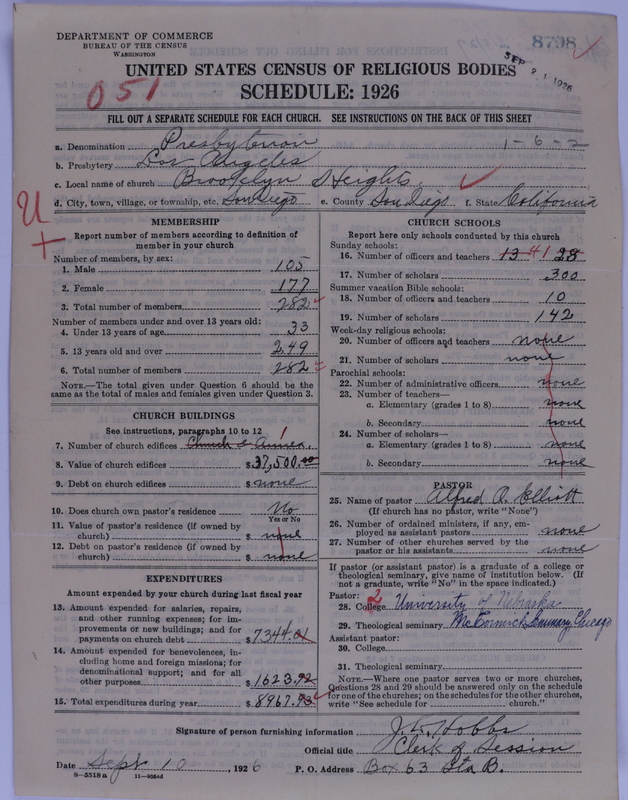 DEPARTMENT OF COMMERCE
BUREAU OF THE CENSUS
WASHINGTON
8798
SEP 21 1926
UNITED STATES CENSUS OF RELIGIOUS BODIES
SCHEDULE: 1926
051
FILL OUT A SEPARATE SCHEDULE FOR EACH CHURCH. SEE INSTRUCTIONS ON THE BACK OF THIS SHEET
a. Denomination Presbyterian 1-6-2
b. Presbytery Los Angeles
c. Local name of church Brooklyn Heights
d. City, town, village, or township, etc. San Diego e. County San Diego f. State California
MEMBERSHIP
Report number of members according to definition of
member in your church
Number of members, by sex:
1. Male 105
2. Female 177
3. Total number of members 282
Number of members under and over 13 years old:
4. Under 13 years of age 33
5. 13 years old and over 249
6. Total number of members 282
NOTE.—The total given under Question 6 should be
same as the total of males and females given under Question 3.
CHURCH BUILDINGS
See instructions, paragraphs 10 to 12
7. Number of church edifices Church & Annex 1
8. Value of church edifices $37,500.00
9. Debt on church edifices $ none
10. Does church own pastor's residence No
Yes or No
11. Value of pastor's residence (if owned by
church) $ none
12. Debt on pastor's residence (if owned by
church) $ none
EXPENDITURES
Amount expended by your church during last fiscal year
13. Amount expended for salaries, repairs,
and other running expenses; for im-
provements or new buildings; and for
payments on church debt $7344.01
14. Amount expended for benevolences, in-
cluding home and foreign missions; for
denominational support; and for all
other purposes $1623.92
15. Total expenditures during year $8967.93
CHURCH SCHOOLS
Report here only schools conducted by this church
Sunday schools:
16. Number of officers and teachers 13 41 28
17. Number of scholars 300
Summer vacation Bible schools:
18. Number of officers and teachers 10
19. Number of scholars 142
Week-day religious schools:
20. Number of officers and teachers none
21. Number of scholars none
Parochial schools:
22. Number of administrative officers none
23. Number of teachers—
a. Elementary (grades 1 to 8) none
b. Secondary none
24. Number of scholars—
a. Elementary (grades 1 to 8) none
b. Secondary none
PASTOR
25. Name of pastor Alfred R. Elliott
(If church has no pastor, write "None")
26. Number of ordained ministers, if any, em-
ployed as assistant pastors none
27. Number of other churches served by the
pastor or his assistants none
If pastor (or assistant pastor) is a graduate of a college or
theological seminary, give name of institution below. (If
not a graduate, write "No" in the space indicated.)
Pastor: 2
28. College University of Nebraska
29. Theological seminary McCormick Seminary, Chicago
Assistant pastor:
30. College
31. Theological seminary
NOTE.—Where one pastor serves two or more churches,
Questions 28 and 29 should be answered only on the schedule
for one of the churches; on the schedules for the other churches,
write "See schedule for church."
Signature of person furnishing information J. L. Hobbs
Official title Clerk of Session
Date Sept 10, 1926 P. O. Address Box 63 Sta B.
8-5518 a